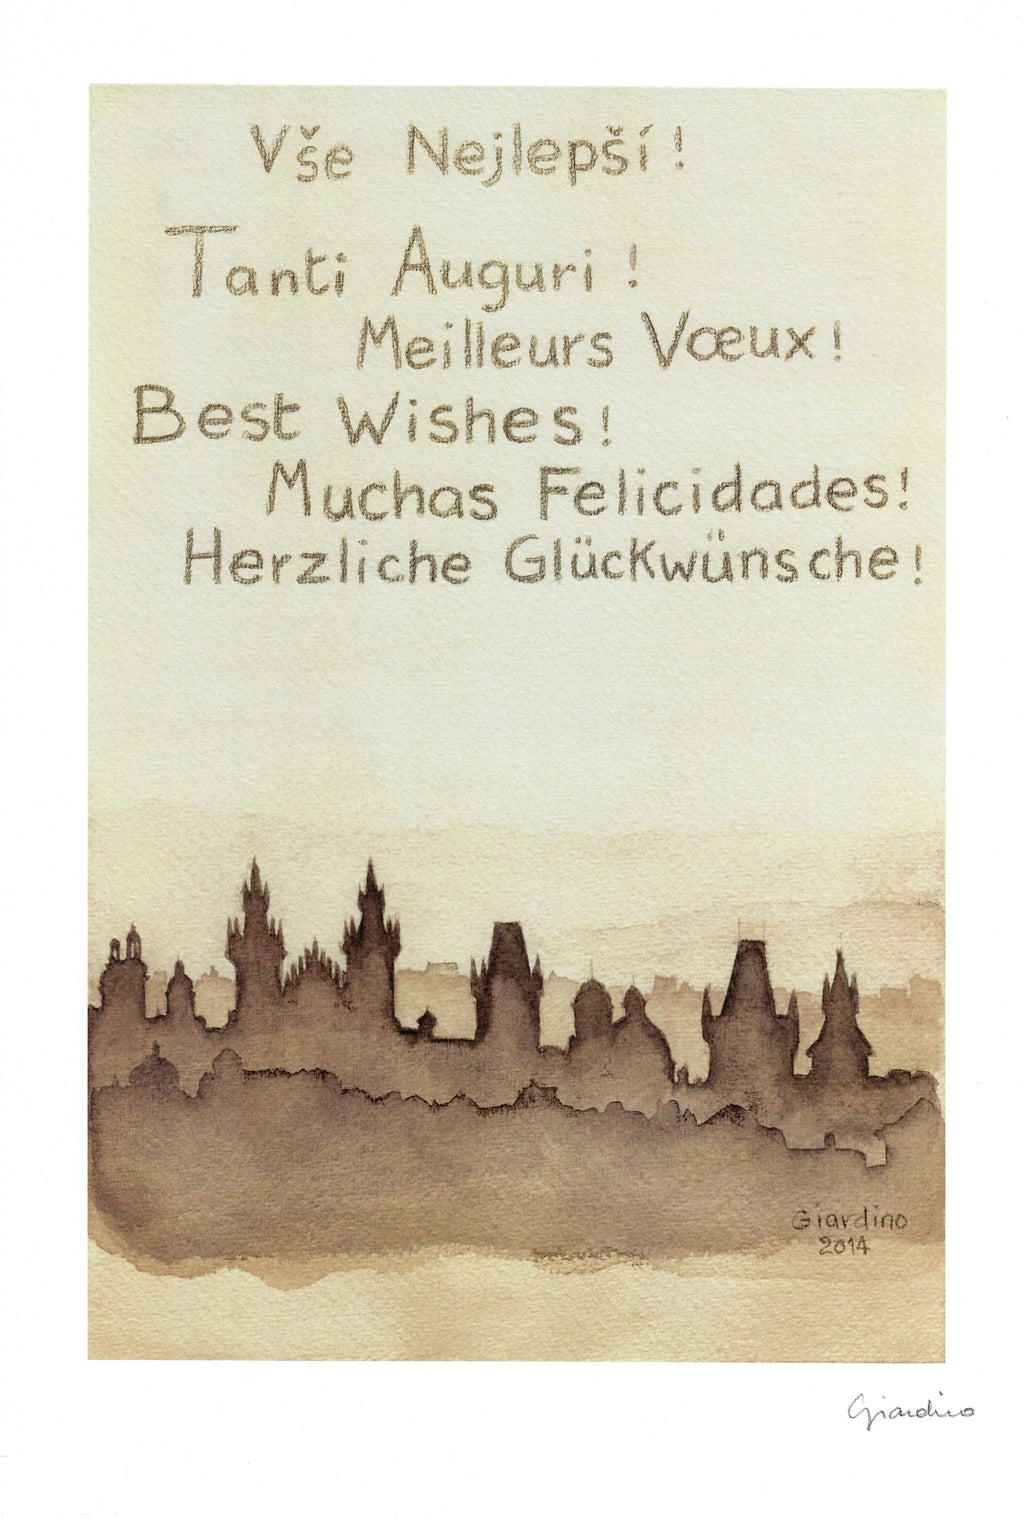 Vše Nejlepší!
Tanti Auguri!
Meilleurs Vœux!
Best Wishes!
Muchas Felicidades!
Herzliche Glückwünsche!
Giardino
2014
Giardino